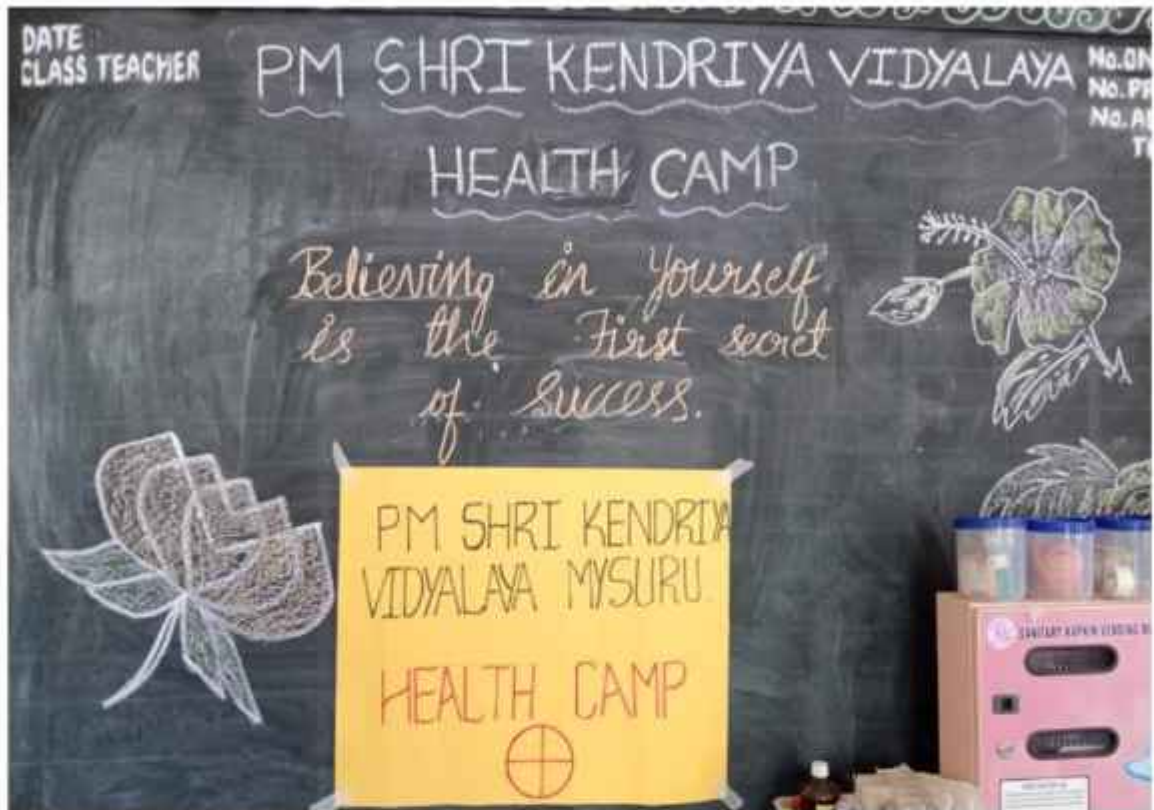 DATE
CLASS TEACHER
PM SHRI KENDRIYA VIDYALAYA
HEALTH CAMP
Believing in yourself
is the First secret
of success.
PM SHRI KENDRIYA
VIDYALAYA MYSURU
HEALTH CAMP
No.
No.
No.
SANITARY NAPKIN VENDING